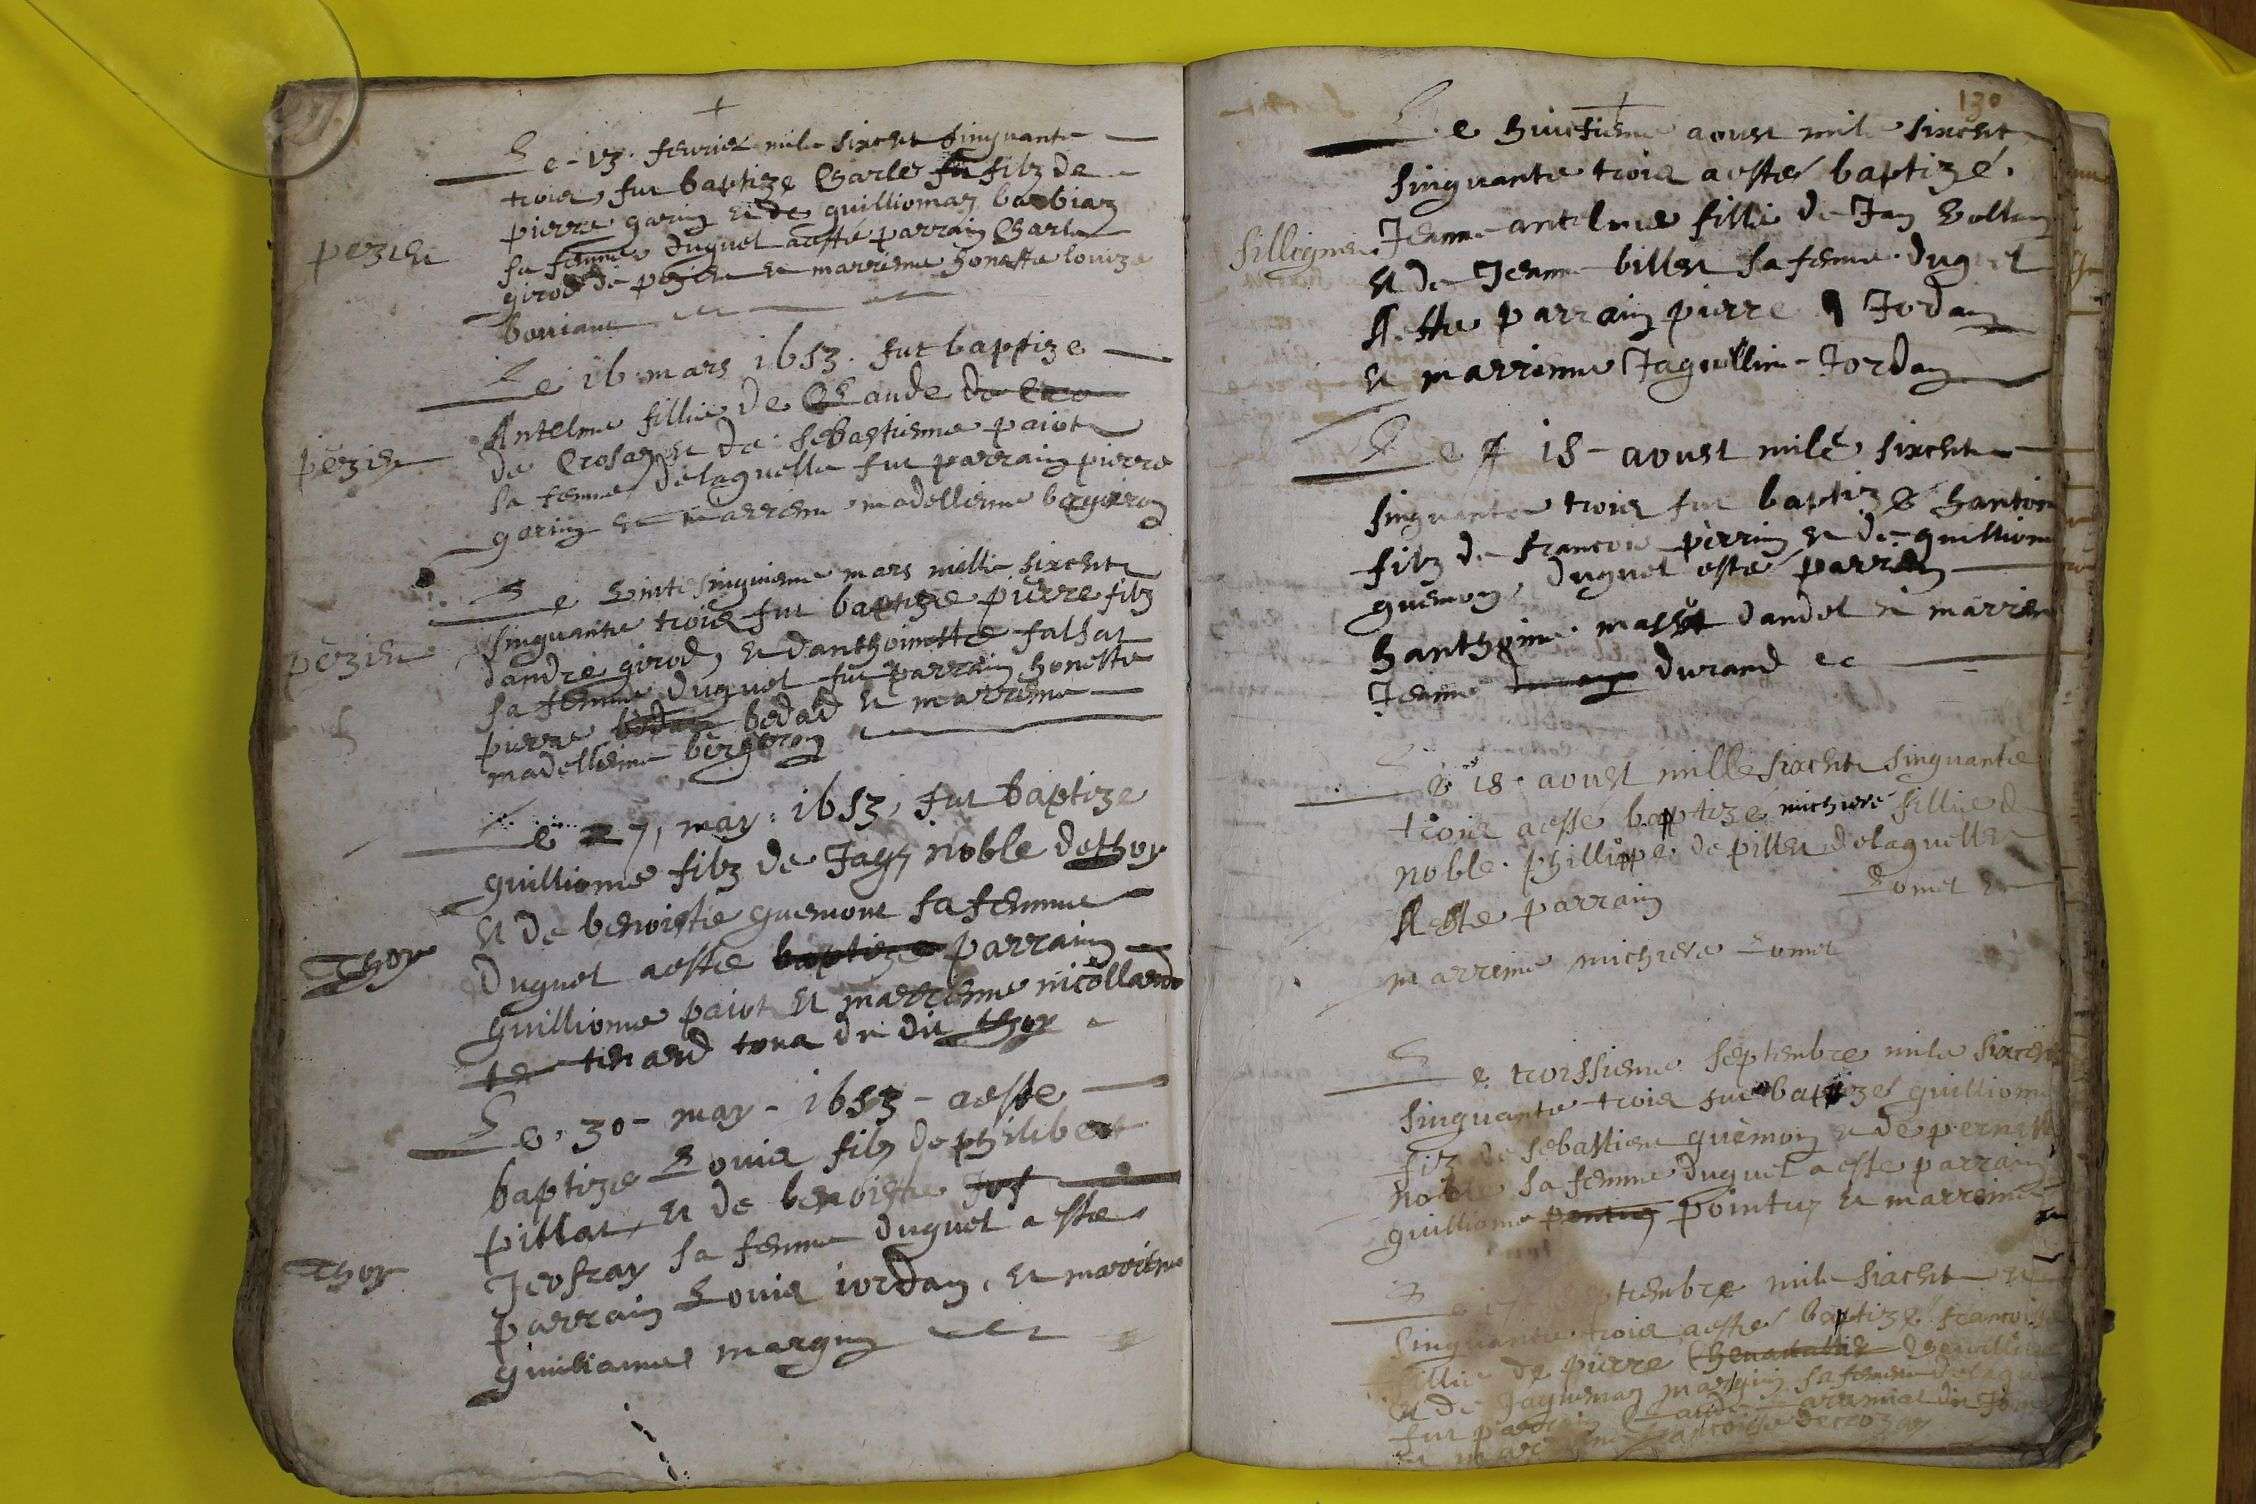 Le 13. feurier mile sixcent singuante
trois, fut baptize Charle filz de
pierre garin et de guilliomaz barbiaz
sa femme duquel aeste parrain Charle
pezieu
girod de pezieu et marriene honeste louize
bouiane
Le 16 mars 1653. fut baptize
Antelme fillie de Claude de Cro
pezieu
de Crosaz et de sebastienne paiot
sa femme, delaquelle fut parrain pierre
garin et marriene madellienne bergiron
Le vintesinguieme mars mille sixcent
singuante trois fut baptize pierre filz
pezieu
dandre girod, et danthoinette falsat
sa femme duquel fut parrain honeste
pierre bedad et marriene
madellienne bergeron
Le 27, may: 1653, fut baptize
guilliome filz de Jaqz noble dethoy
et de benoiste guemont sa femme
Thoy
duquel aeste baptize parrain
guilliome paiot et marrienne nicollarde
te tenard tous de dit thoy
Le, 30 - may - 1653 - aeste
baptize Louis filz de philibert
pillat, et de benoiste Jof
Thoy
Jeofray sa femme duquel a este
parrain Louis iordan, et marriene
guilianne margin
130
Le huictieme aoust mile sixcent
singuante trois aesté baptizé.
filligneu
Jeanne antelme fillie de Jan Vollan
et de Jeanne billet sa femme. duquel
Aeste parrain pierre Jordan
et marrienne Jaquelline - Jordan
Le 18 - aoust mile sixcent
singuante trois fut baptizé hantoin
filz de francois perrin et de guilliom
guemon, duquel este parrain
hanthoine massot dandot et marrien
Jeanne durand
Le 18. aoust mille sixcent singuante
trois aesté baptizé michiere fillie de
noble. phillippe de pilleu delaquelle
Aeste parrain Lomet et
marreine michiere Lomet
Le troissieme septembre mile sixcent
singuante trois fut baptizé guilliome
filz de sebastien guemon et de pernette
noble sa femme duquel aeste parrain
guilliome pointuz et marreine
septembre mile sixcent et
singuante trois aesté baptizé francoise
fillie de pierre
et de Jaquemaz margin sa femme delaque
fut parrain
francoise decrozaz